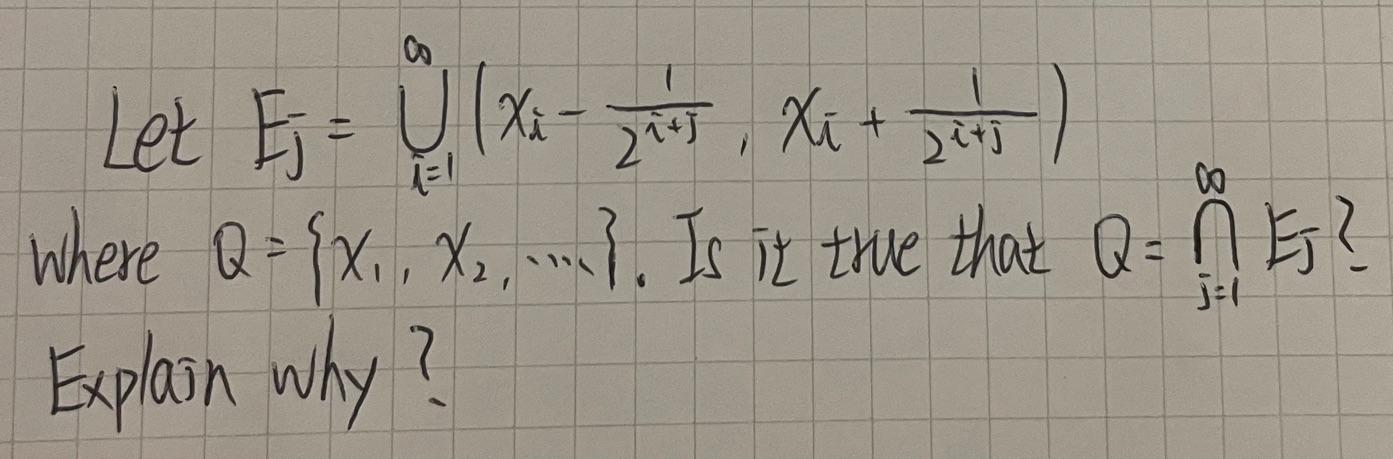 Let E_j = ⋃_{i=1}^{∞} (x_i - 1/2^{i+j}, x_i + 1/2^{i+j})
where Q = {x_1, x_2, ....}. Is it true that Q = ⋂_{j=1}^{∞} E_j?
Explain why?